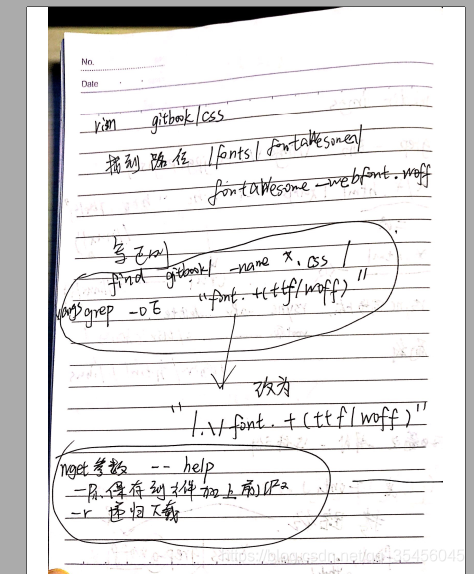 No.
Date
vim gitbook/css
找到路径 /fonts/ fontAwesome/
fontAwesome-webfont.woff
写正则
find gitbook/ -name *.css |
xargs grep -oE "font.+(ttf|woff)"
改为
"/.\/font.+(ttf|woff)"
wget参数 --help
保存到文件加上前
-r 递归下载
https://blog.csdn.net/qq_35456045